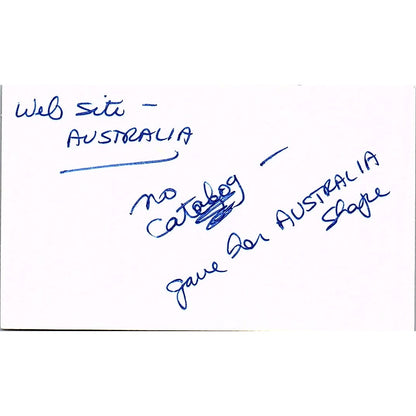 Web site -
AUSTRALIA
no
catalog -
gave her AUSTRALIA
shape